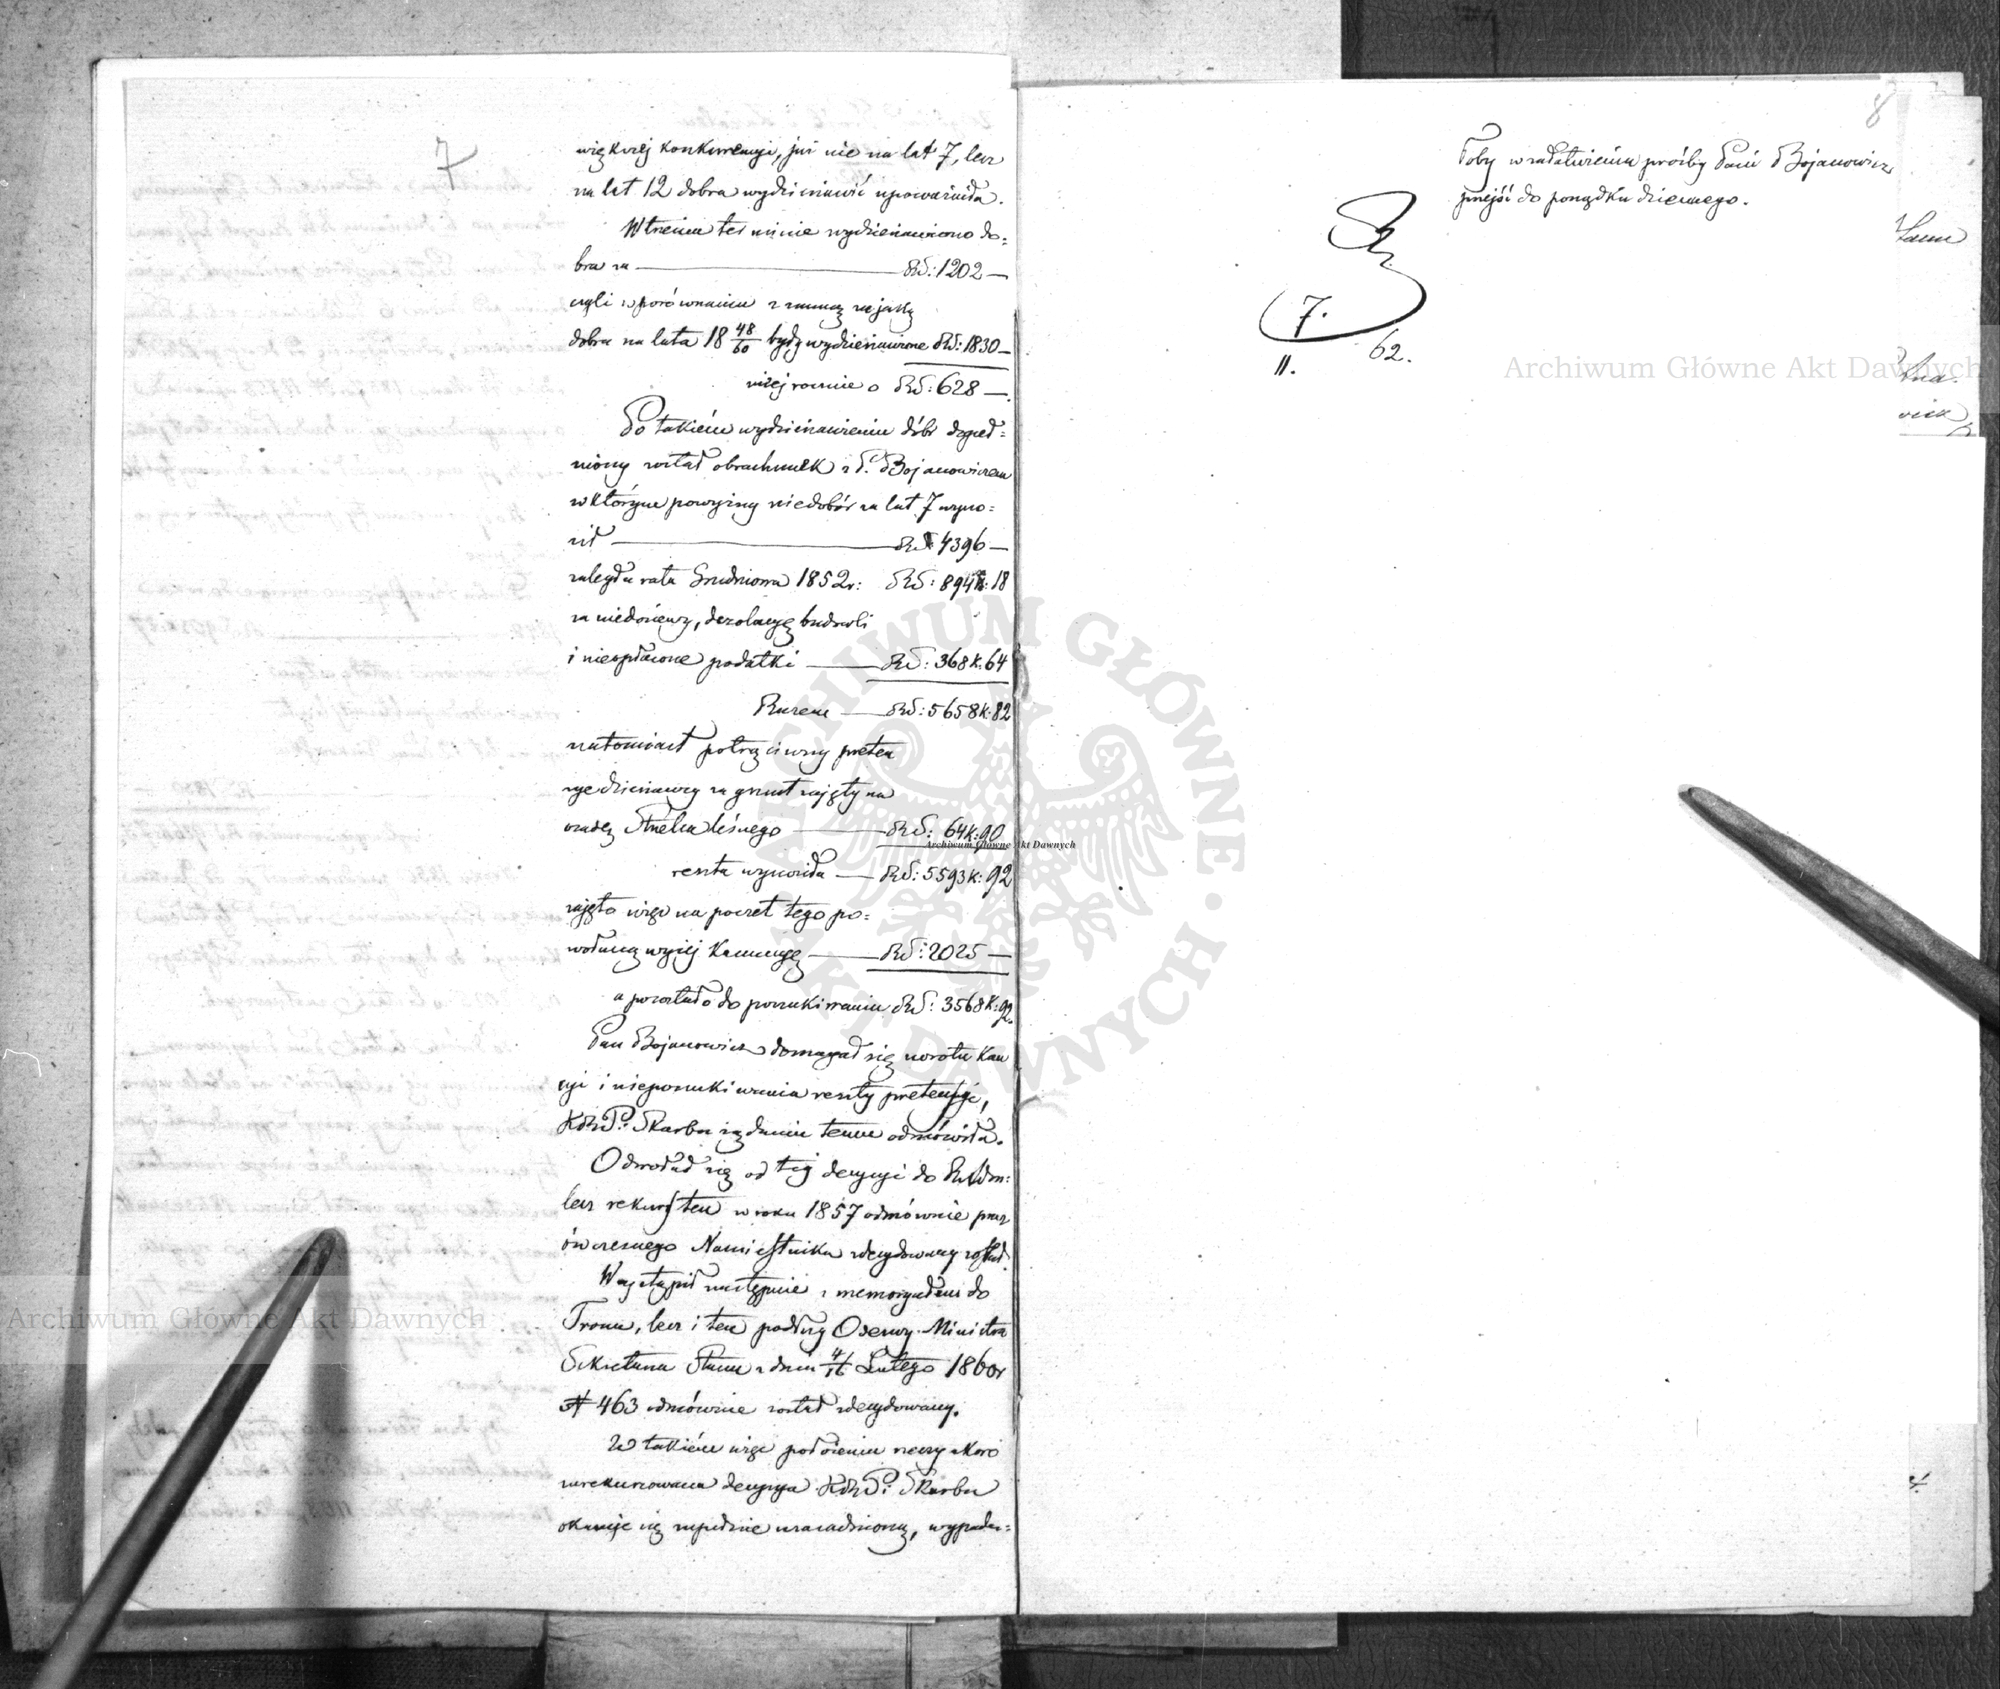 7
większej konkurencyi, już nie na lat 7, lecz
na lat 12 dobra wydzierżawić upoważniła.
W trzecim terminie wydzierżawiono do=
bra za — RS: 1202 —
czyli w porównaniu z summą za jaką
dobra na lata 18 48/60 były wydzierżawione RS: 1830 —
niżej rocznie o RS: 628 —.
Po takiém wydzierżawieniu dóbr dopeł=
niony został obrachunek z P. Bojanowiczem
w którym powyższy niedobór za lat 7 wyno=
sił — RS 4396 —
zaległa rata Grudniowa 1852 r: RS: 894 k: 18
za niedosiewy, dezolacyę budowli
i nieopłacone podatki — RS: 368 k: 64
Razem — RS: 5658 k: 82
natomiast potrąciwszy preten
sye dzierżawcy za grunt zajęty na
osadę Strzelca leśnego — RS: 64 k: 90
reszta wynosiła — RS: 5593 k: 92
zajęto więc na poczet tego po=
wołaną wyżej kaucyę — RS: 2025 —
a pozostało do poszukiwania RS: 3568 k: 92.
Pan Bojanowicz domagał się zwrotu kau
cyi i nieposzukiwania reszty pretensyi,
KRP. Skarbu żądaniu temu odmówiła.
Odwołał się od tej decyzyi do RAdm:
lecz rekurs ten w roku 1857 odmównie przez
ówczesnego Namiestnika zdecydowany został.
Wystąpił następnie z memoryałem do
Tronu, lecz i ten podług Odezwy Ministra
Sekretarza Stanu z dnia 4/16 Lutego 1860 r
N 463 odmównie został zdecydowany.
W takiém więc położeniu rzeczy skoro
zarekursowana decyzya KRP. Skarbu
okazuje się zupełnie uzasadnioną, wypada=
8
łoby w załatwieniu prośby Pani Bojanowicz
przejść do porządku dziennego.
7.
II. 62.
Archiwum Główne Akt Dawnych
Archiwum Główne Akt Dawnych
Archiwum Główne Akt Dawnych
ARCHIWUM GŁÓWNE AKT DAWNYCH